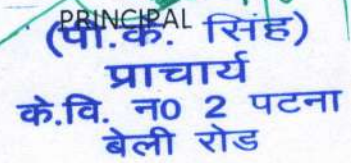 PRINCIPAL
(पी.के. सिंह)
प्राचार्य
के.वि. न0 2 पटना
बेली रोड